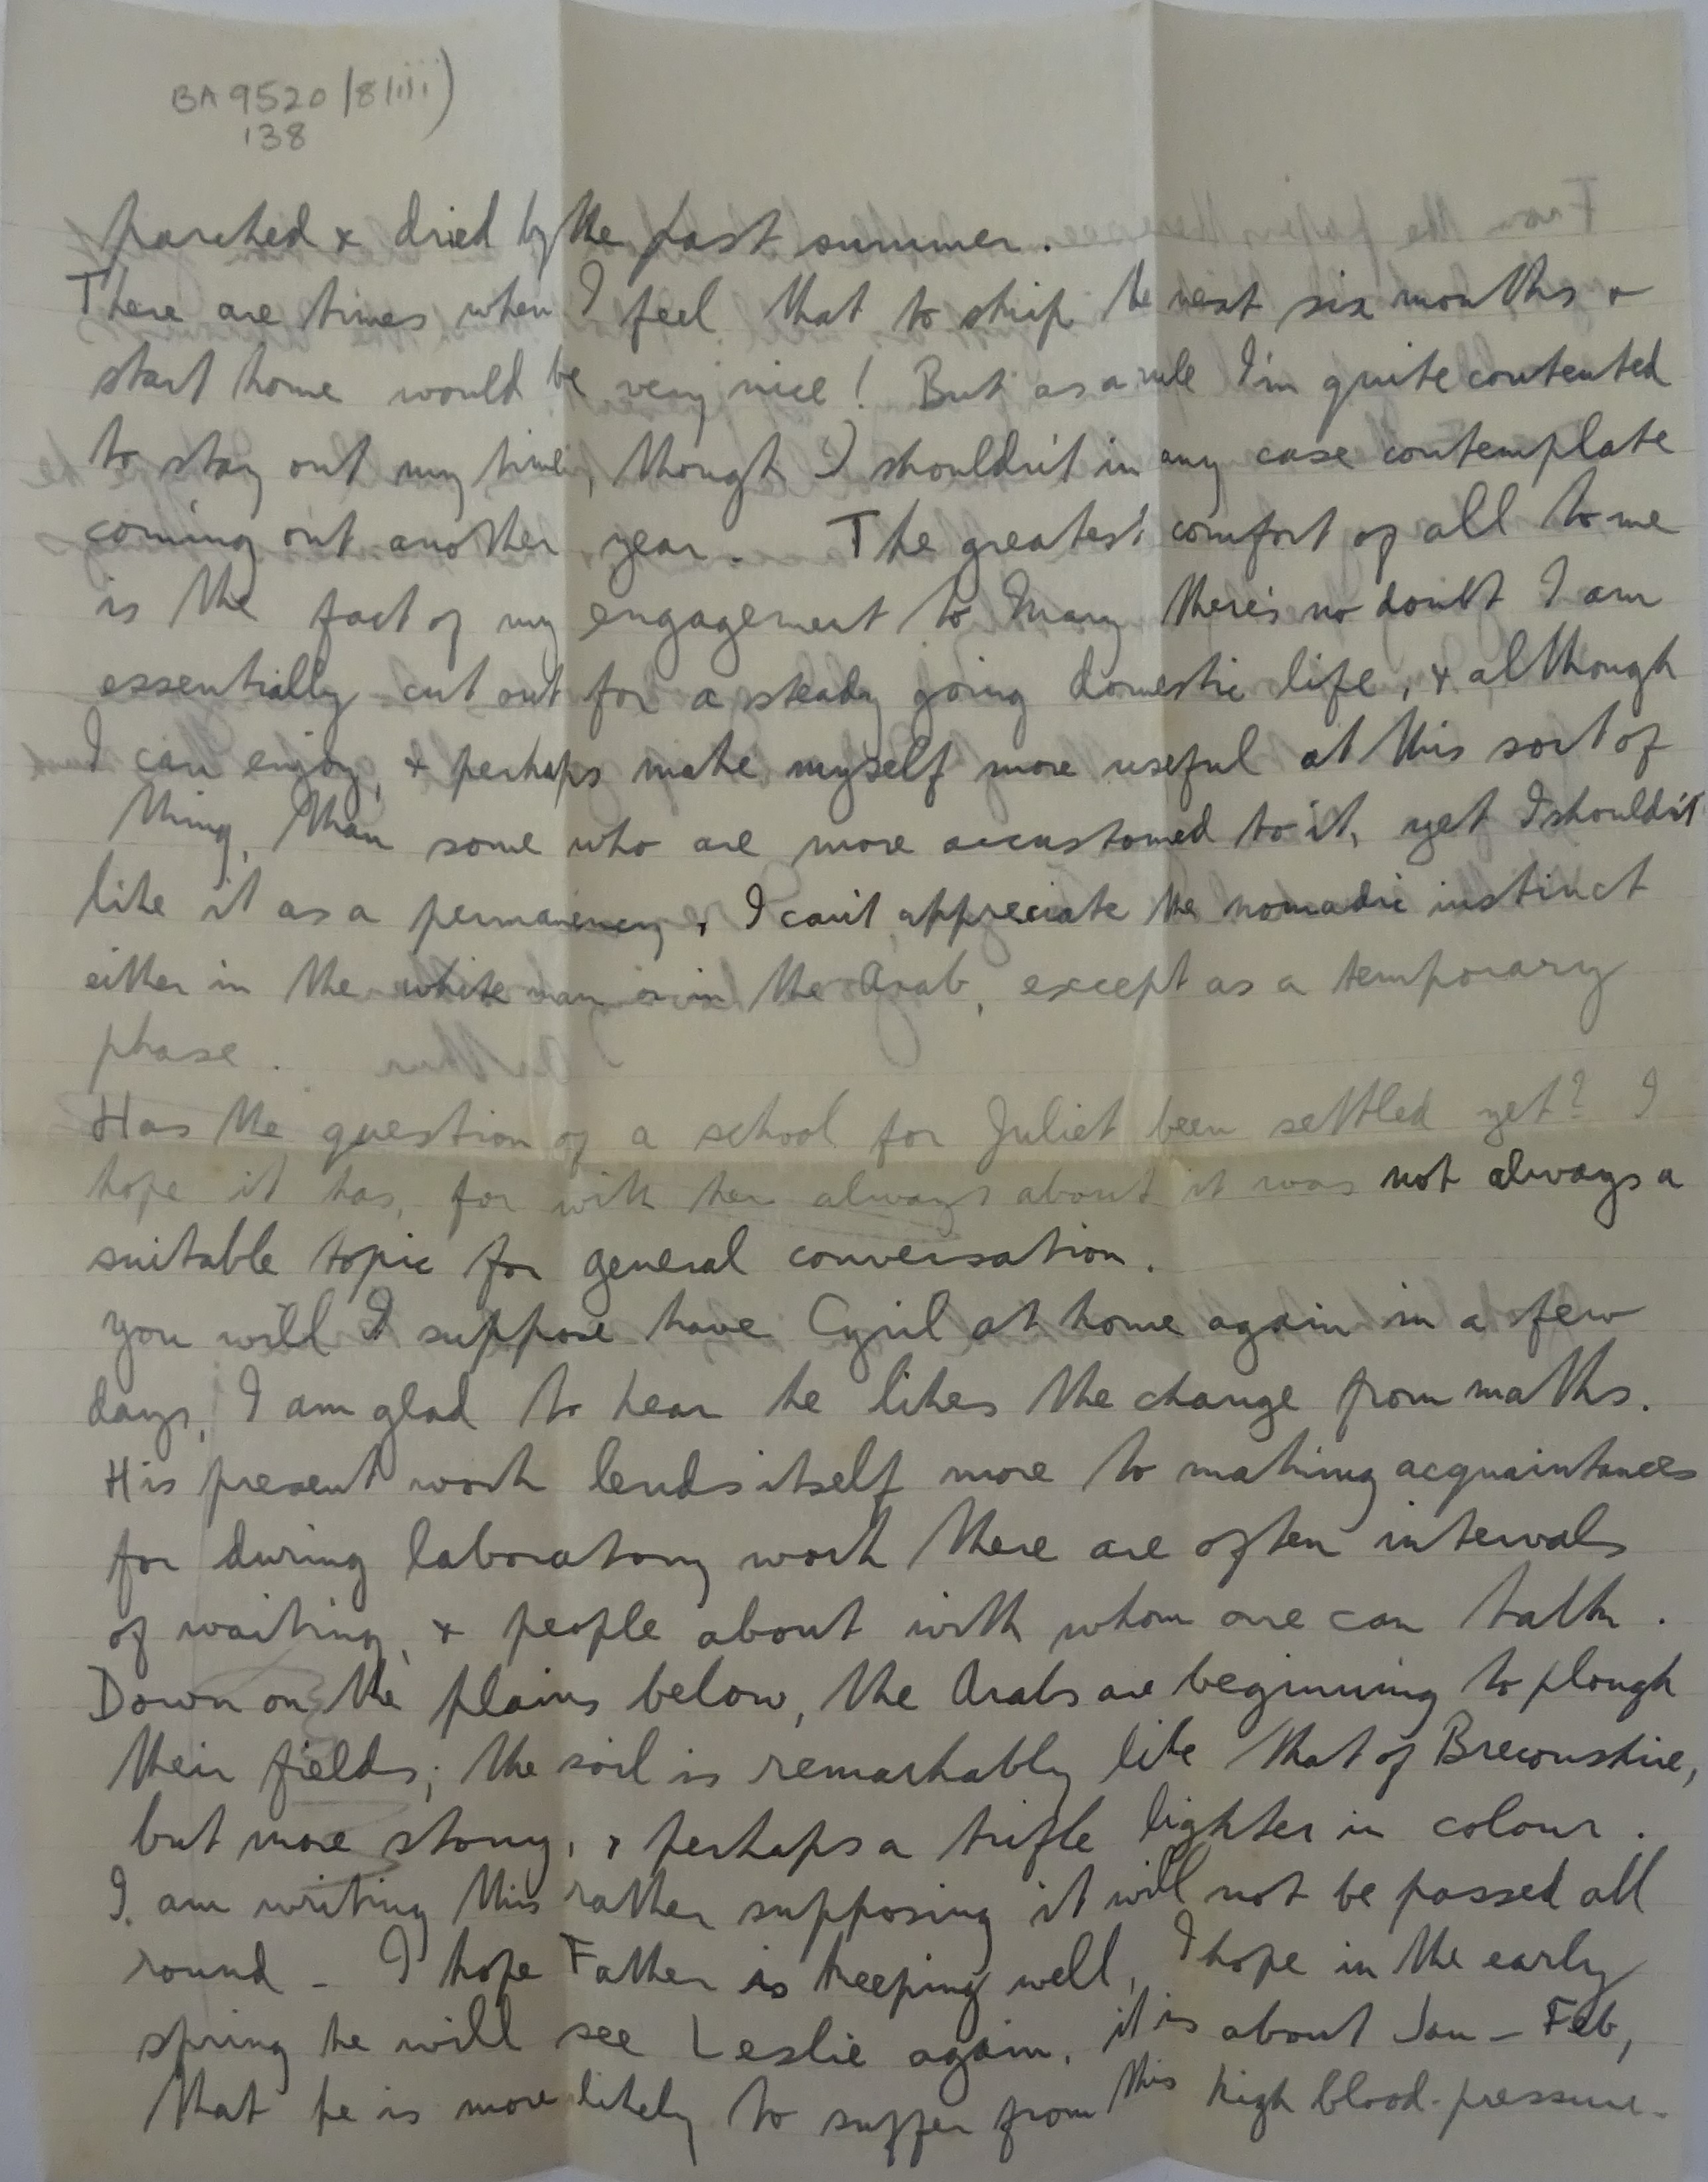 BA 9520/8(iii)
138
parched & dried by the past summer.
There are times when I feel that to skip the next six months &
start home would be very nice! But as a rule I'm quite contented
to stay out my time, though I shouldn't in any case contemplate
coming out another year. The greatest comfort of all to me
is the fact of my engagement to Mary there's no doubt I am
essentially cut out for a steady going domestic life, & although
I can enjoy, & perhaps make myself more useful at this sort of
thing, than some who are more accustomed to it, yet I shouldn't
like it as a permanency, I can't appreciate the nomadic instinct
either in the white man or in the Arab, except as a temporary
phase.
Has the question of a school for Juliet been settled yet? I
hope it has, for with her always about it was not always a
suitable topic for general conversation.
you will I suppose have Cyril at home again in a few
days, I am glad to hear he likes the change from maths.
His present work lends itself more to making acquaintances
for during laboratory work there are often intervals
of waiting, & people about with whom one can talk.
Down on the plains below, the Arabs are beginning to plough
their fields; the soil is remarkably like that of Breconshire,
but more stony, & perhaps a trifle lighter in colour.
I am writing this rather supposing it will not be passed all
round - I hope Father is keeping well, I hope in the early
spring he will see Leslie again, it is about Jan - Feb,
that he is more likely to suffer from this high blood-pressure.